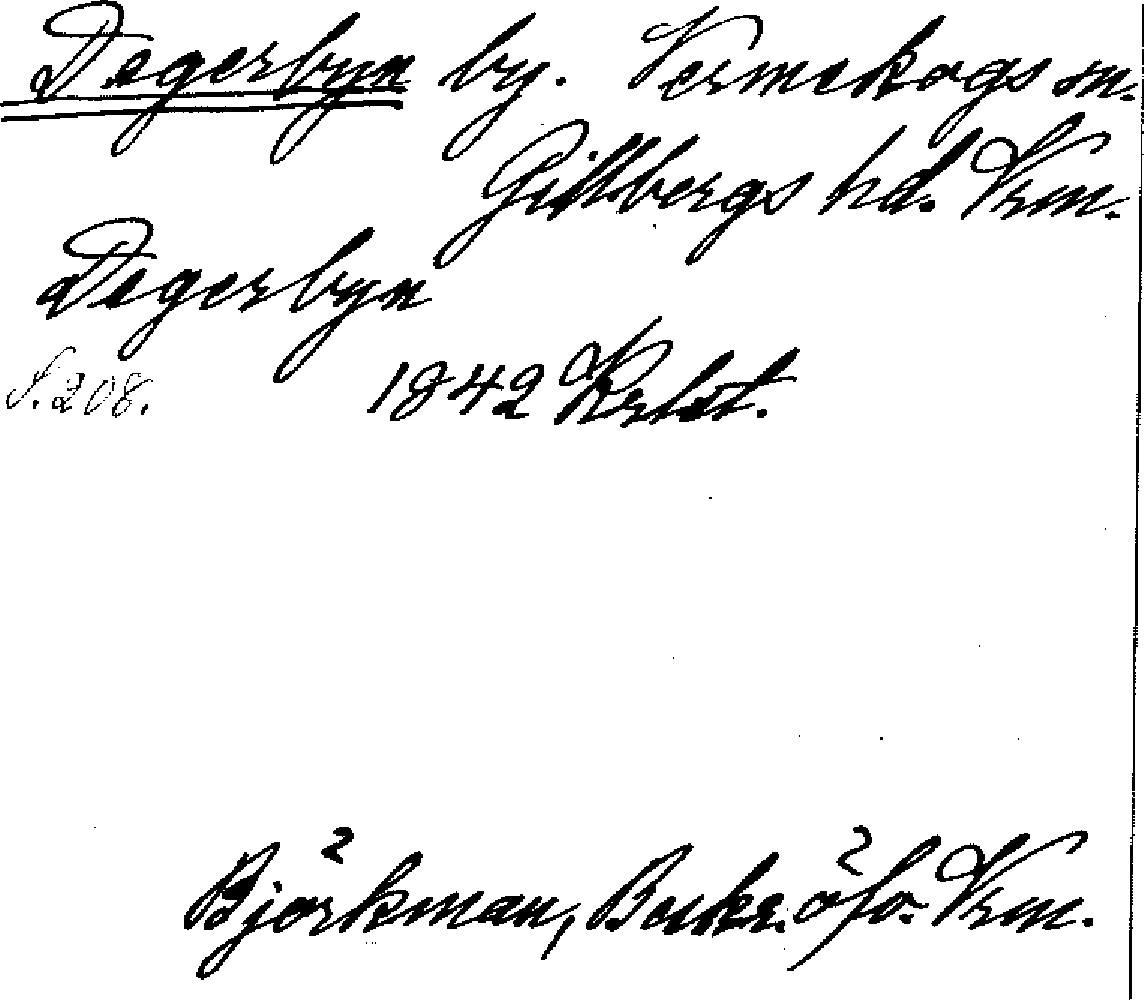 Degerbyn by. Vermskogs sn.
Gillbergs hd. Vrm.
Degerbyn
S. 208. 1842 Krlst.
Björkman, Beskr. öfv. Vrm.